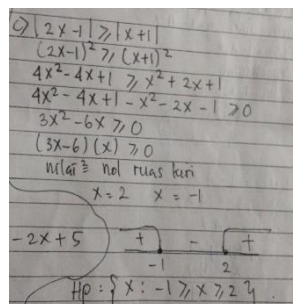 c) |2x-1| ≥ |x+1|
(2x-1)² ≥ (x+1)²
4x²-4x+1 ≥ x²+2x+1
4x²-4x+1-x²-2x-1 ≥ 0
3x²-6x ≥ 0
(3x-6)(x) ≥ 0
nilai² nol ruas kiri
x=2 x=-1
-2x+5
+ - +
-1 2
Hp : { x : -1 ≥ x ≥ 2 }